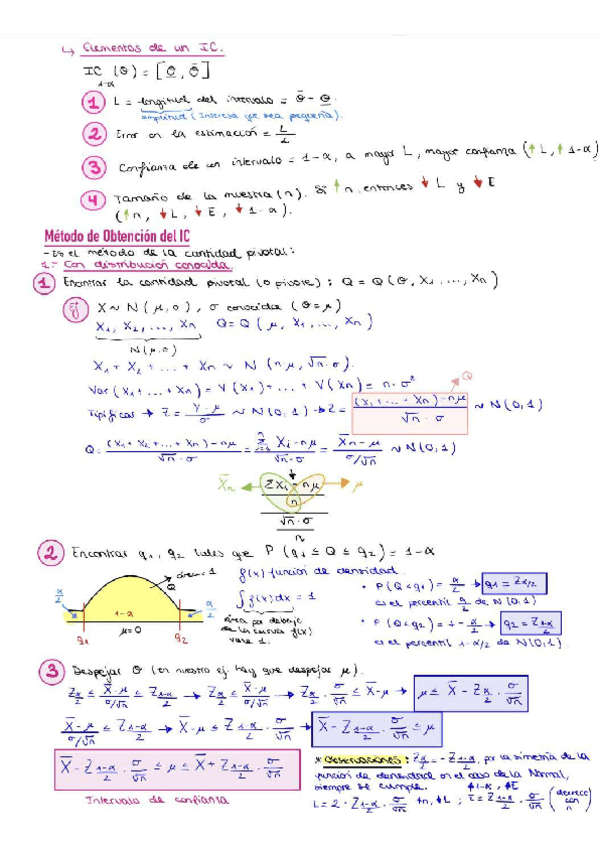 ↳ Elementos de un IC.
IC 1-α (θ) = [θ̲, θ̄]
1 L = longitud del intervalo = θ̄ - θ̲.
amplitud (Interesa que sea pequeña).
2 Error en la estimación = L/2
3 Confianza de un intervalo = 1-α, a mayor L, mayor confianza (↑L, ↑1-α)
4 Tamaño de la muestra (n). Si ↑n, entonces ↓L y ↓E
(↑n, ↓L, ↓E, ↓1-α).
Método de Obtención del IC
- Es el método de la cantidad pivotal:
1.- Con distribución conocida.
1 Encontrar la cantidad pivotal (o pivote): Q = Q(θ, X1, ..., Xn)
Ej X ~ N(μ, σ), σ conocida (θ=μ)
X1, X2, ..., Xn Q = Q(μ, X1, ..., Xn)
N(μ, σ)
X1 + X2 + ... + Xn ~ N(nμ, √n·σ).
Var(X1 + ... + Xn) = V(X1) + ... + V(Xn) = n·σ²
Q
Tipificar → Z = (Y-μ)/σ ~ N(0,1) → Z = ((X1 + ... + Xn) - nμ)/(√n·σ) ~ N(0,1)
Q = ((X1 + X2 + ... + Xn) - nμ)/(√n·σ) = (Σ Xi - nμ)/(√n·σ) = (X̄n - μ)/(σ/√n) ~ N(0,1)
X̄n ← (ΣXi - nμ)/n → μ
√n·σ/n
2 Encontrar q1, q2 tales que P(q1 ≤ Q ≤ q2) = 1-α
área = 1
α/2 1-α α/2
q1 μ=0 q2
f(x) función de densidad
∫f(x)dx = 1
área por debajo
de la curva f(x)
vale 1.
• P(Q<q1) = α/2 → q1 = Zα/2
es el percentil α/2 de N(0,1)
• P(Q<q2) = 1-α/2 → q2 = Z1-α/2
es el percentil 1-α/2 de N(0,1).
3 Despejar θ (en nuestro ej. hay que despejar μ).
Zα/2 ≤ (X̄-μ)/(σ/√n) ≤ Z1-α/2 → Zα/2 ≤ (X̄-μ)/(σ/√n) → Zα/2 · σ/√n ≤ X̄-μ → μ ≤ X̄ - Zα/2 · σ/√n
(X̄-μ)/(σ/√n) ≤ Z1-α/2 → X̄-μ ≤ Z1-α/2 · σ/√n → X̄ - Z1-α/2 · σ/√n ≤ μ
X̄ - Z1-α/2 · σ/√n ≤ μ ≤ X̄ + Z1-α/2 · σ/√n
Intervalo de confianza
* Observaciones: Zα/2 = -Z1-α/2, por la simetría de la
función de densidad en el caso de la Normal,
siempre se cumple. ↑1-α, ↑E
L = 2 · Z1-α/2 · σ/√n ↑n, ↓L ; E = Z1-α/2 · σ/√n (decrece con n)